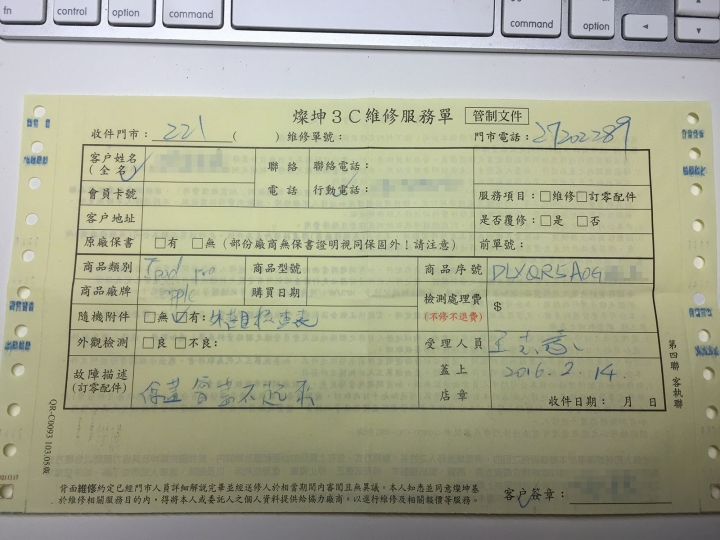 fn control option command
command option
燦坤3C維修服務單 管制文件
收件門市：221( ) 維修單號： 門市電話：27202289
客戶姓名(全名) 聯絡電話 聯絡電話：
會員卡號 行動電話： 服務項目：□維修□訂零配件
客戶地址 是否覆修：□是 □否
原廠保書 □有 □無 (部份廠商無保書證明視同保固外！請注意) 前單號：
商品類別 Ipad pro 商品型號 商品序號 DLXQR5A0G
商品廠牌 apple 購買日期 檢測處理費(不修不退費) $
隨機附件 □無 ☑有:
外觀檢測 □良 □不良: 受理人員 王志
故障描述(訂零配件) 蓋上店章 2016.2.14.
收件日期： 月 日
第四聯 客執聯
QR-C0093 103.05版
背面維修約定已經門市人員詳細解說完畢並經送修人於相當期間內審閱且無異議。本人知悉並同意燦坤基
於維修相關服務目的內，得將本人或委託人之個人資料提供給協力廠商，以進行維修及相關報價等服務。
客戶簽章：